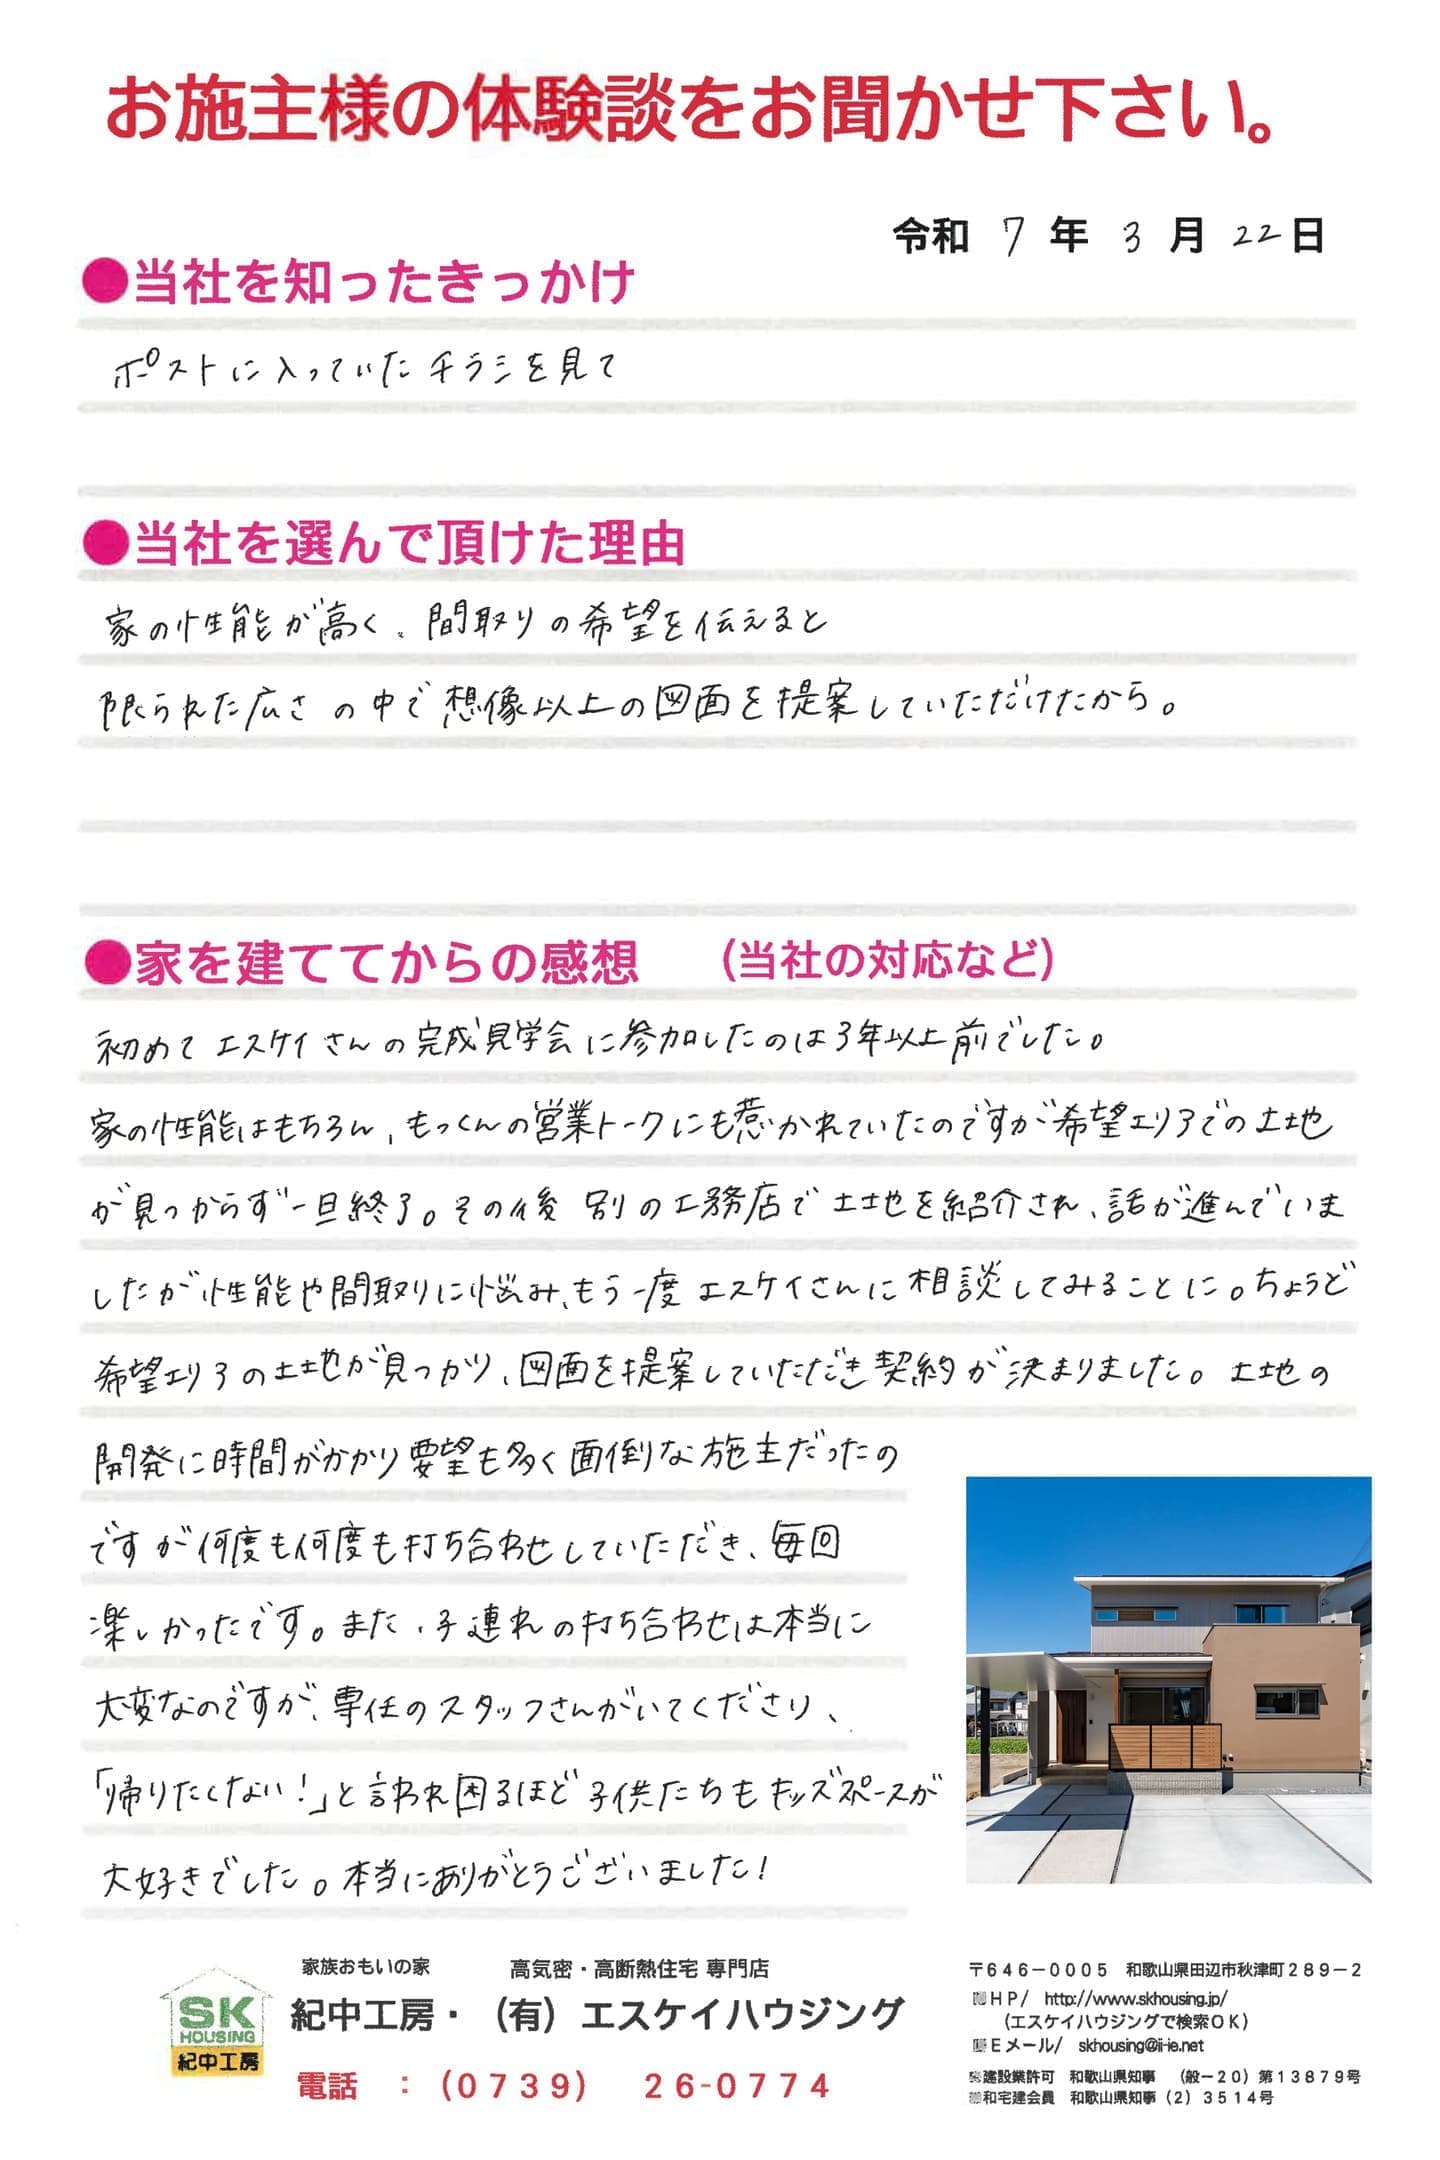 お施主様の体験談をお聞かせ下さい。
令和 7 年 3 月 22 日
●当社を知ったきっかけ
ポストに入っていたチラシを見て
●当社を選んで頂けた理由
家の性能が高く、間取りの希望を伝えると
限られた広さの中で想像以上の図面を提案していただけたから。
●家を建ててからの感想 (当社の対応など)
初めてエスケイさんの完成見学会に参加したのは3年以上前でした。
家の性能はもちろん、もっくんの営業トークにも惹かれていたのですが希望エリアでの土地
が見つからず一旦終了。その後 別の工務店で土地を紹介され、話が進んでいま
したが性能や間取りに悩み、もう一度エスケイさんに相談してみることに。ちょうど
希望エリアの土地が見つかり、図面を提案していただき契約が決まりました。土地の
開発に時間がかかり要望も多く面倒な施主だったの
ですが何度も何度も打ち合わせしていただき、毎回
楽しかったです。また、子連れの打ち合わせは本当に
大変なのですが、専任のスタッフさんがいてくださり、
「帰りたくない!」と言われ困るほど子供たちもキッズスペースが
大好きでした。本当にありがとうございました!
家族おもいの家 高気密・高断熱住宅 専門店
紀中工房・(有)エスケイハウジング
電話 :(0739) 26-0774
SK
HOUSING
紀中工房
〒646-0005 和歌山県田辺市秋津町289-2
HP/ http://www.skhousing.jp/
(エスケイハウジングで検索OK)
Eメール/ skhousing@ii-ie.net
建設業許可 和歌山県知事 (般-20)第13879号
和宅建会員 和歌山県知事(2)3514号